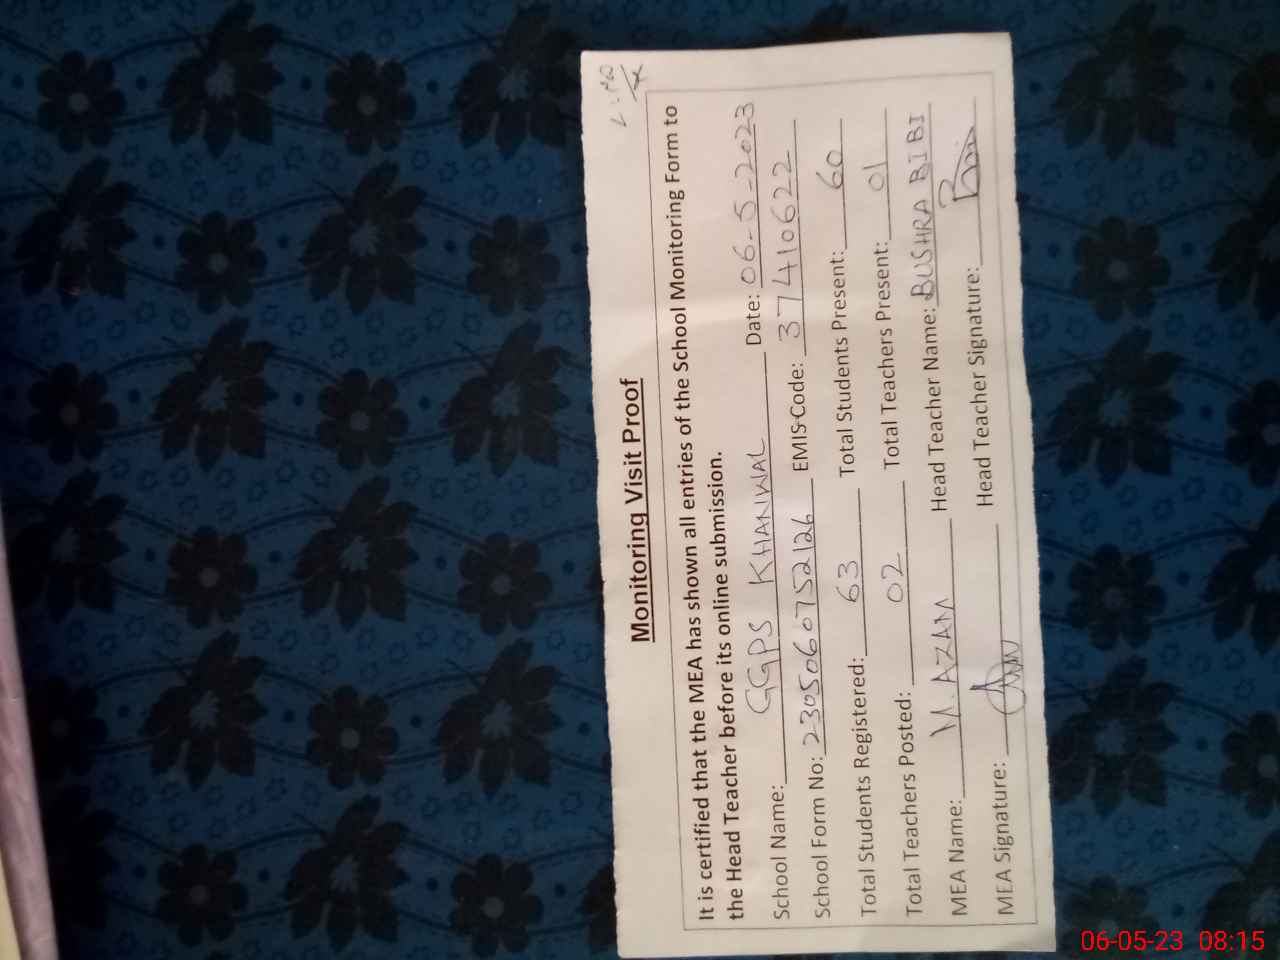 Monitoring Visit Proof
It is certified that the MEA has shown all entries of the School Monitoring Form to
the Head Teacher before its online submission.
School Name: GGPS KHANWAL Date: 06-5-2023
School Form No: 2305060752126 EMIS Code: 37410622
Total Students Registered: 63 Total Students Present: 60
Total Teachers Posted: 02 Total Teachers Present: 01
MEA Name: M.AZAM Head Teacher Name: BUSHRA BIBI
MEA Signature: Head Teacher Signature:
06-05-23 08:15